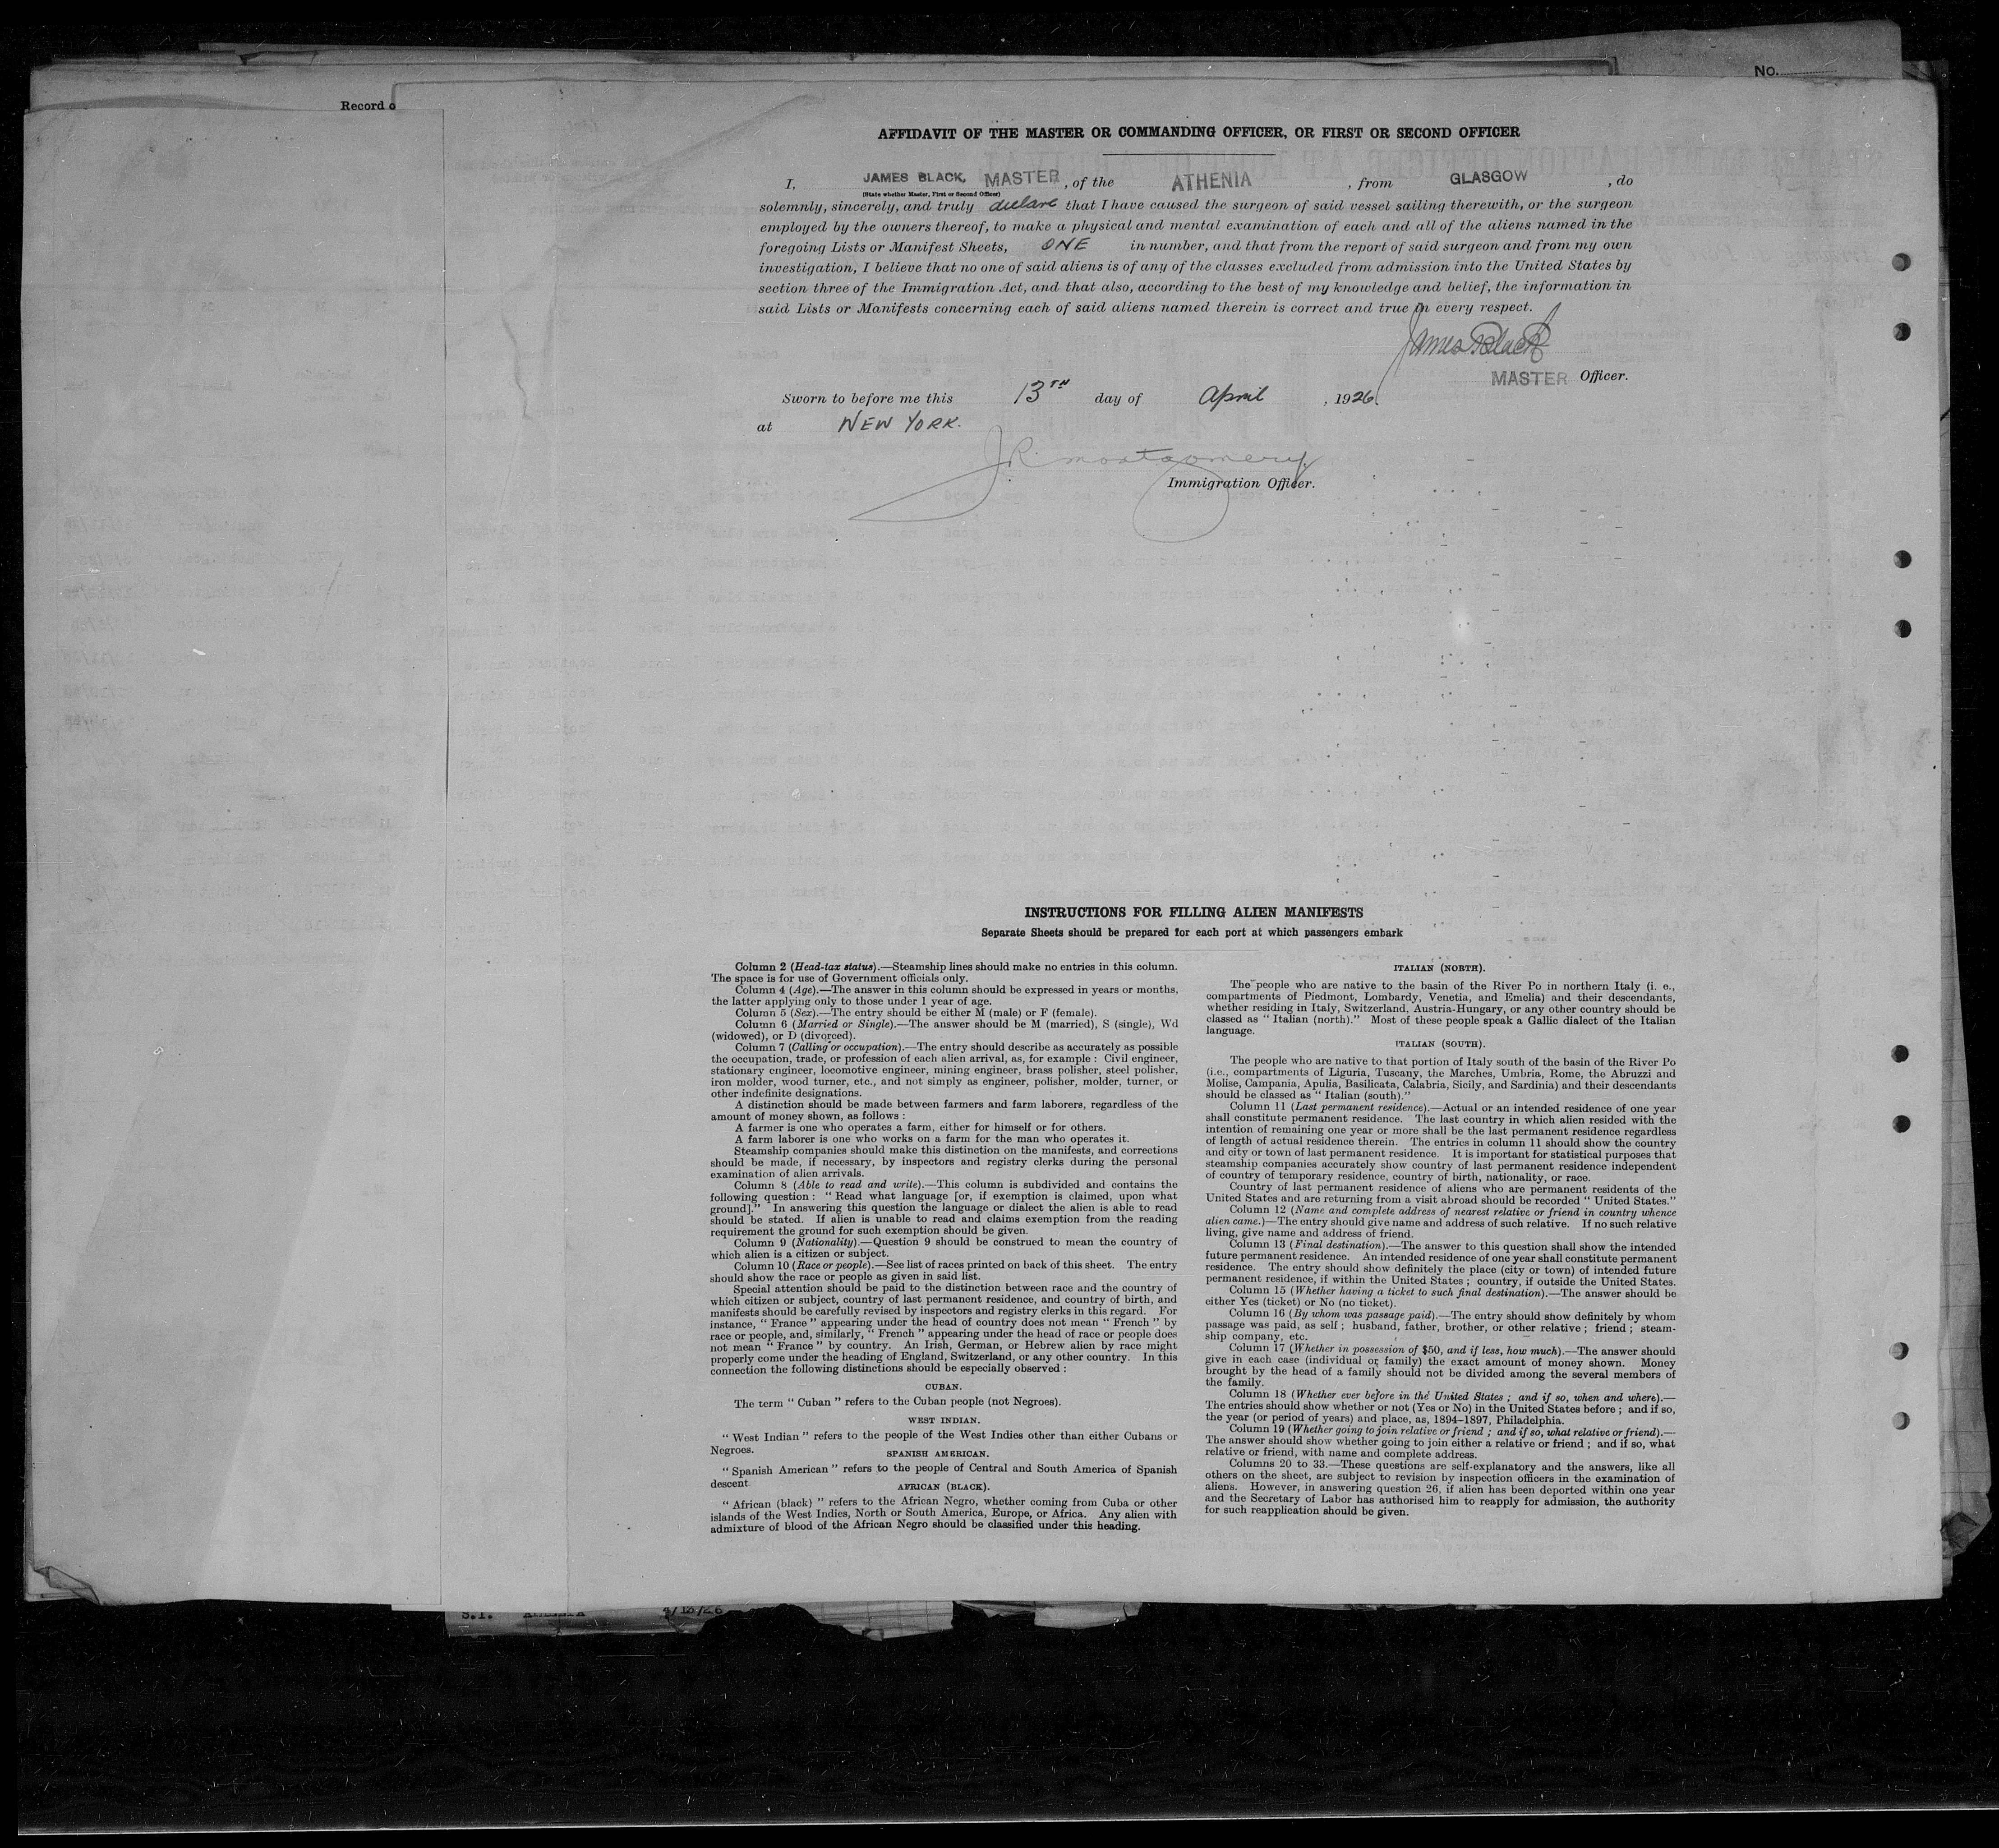 No.
Record o
AFFIDAVIT OF THE MASTER OR COMMANDING OFFICER, OR FIRST OR SECOND OFFICER
I, JAMES BLACK, MASTER, of the ATHENIA, from GLASGOW, do
(State whether Master, First or Second Officer)
solemnly, sincerely, and truly declare that I have caused the surgeon of said vessel sailing therewith, or the surgeon
employed by the owners thereof, to make a physical and mental examination of each and all of the aliens named in the
foregoing Lists or Manifest Sheets, ONE in number, and that from the report of said surgeon and from my own
investigation, I believe that no one of said aliens is of any of the classes excluded from admission into the United States by
section three of the Immigration Act, and that also, according to the best of my knowledge and belief, the information in
said Lists or Manifests concerning each of said aliens named therein is correct and true in every respect.
James Black
MASTER Officer.
Sworn to before me this 13TH day of April, 1926.
at NEW YORK.
J.R. Montgomery
Immigration Officer.
INSTRUCTIONS FOR FILLING ALIEN MANIFESTS
Separate Sheets should be prepared for each port at which passengers embark
Column 2 (Head-tax status).—Steamship lines should make no entries in this column.
The space is for use of Government officials only.
Column 4 (Age).—The answer in this column should be expressed in years or months,
the latter applying only to those under 1 year of age.
Column 5 (Sex).—The entry should be either M (male) or F (female).
Column 6 (Married or Single).—The answer should be M (married), S (single), Wd
(widowed), or D (divorced).
Column 7 (Calling or occupation).—The entry should describe as accurately as possible
the occupation, trade, or profession of each alien arrival, as, for example : Civil engineer,
stationary engineer, locomotive engineer, mining engineer, brass polisher, steel polisher,
iron molder, wood turner, etc., and not simply as engineer, polisher, molder, turner, or
other indefinite designations.
A distinction should be made between farmers and farm laborers, regardless of the
amount of money shown, as follows :
A farmer is one who operates a farm, either for himself or for others.
A farm laborer is one who works on a farm for the man who operates it.
Steamship companies should make this distinction on the manifests, and corrections
should be made, if necessary, by inspectors and registry clerks during the personal
examination of alien arrivals.
Column 8 (Able to read and write).—This column is subdivided and contains the
following question : " Read what language [or, if exemption is claimed, upon what
ground]." In answering this question the language or dialect the alien is able to read
should be stated. If alien is unable to read and claims exemption from the reading
requirement the ground for such exemption should be given.
Column 9 (Nationality).—Question 9 should be construed to mean the country of
which alien is a citizen or subject.
Column 10 (Race or people).—See list of races printed on back of this sheet. The entry
should show the race or people as given in said list.
Special attention should be paid to the distinction between race and the country of
which citizen or subject, country of last permanent residence, and country of birth, and
manifests should be carefully revised by inspectors and registry clerks in this regard. For
instance, " France " appearing under the head of country does not mean " French " by
race or people, and, similarly, " French " appearing under the head of race or people does
not mean " France " by country. An Irish, German, or Hebrew alien by race might
properly come under the heading of England, Switzerland, or any other country. In this
connection the following distinctions should be especially observed :
CUBAN.
The term " Cuban " refers to the Cuban people (not Negroes).
WEST INDIAN.
" West Indian " refers to the people of the West Indies other than either Cubans or
Negroes.
SPANISH AMERICAN.
" Spanish American " refers to the people of Central and South America of Spanish
descent
AFRICAN (BLACK).
" African (black) " refers to the African Negro, whether coming from Cuba or other
islands of the West Indies, North or South America, Europe, or Africa. Any alien with
admixture of blood of the African Negro should be classified under this heading.
ITALIAN (NORTH).
The people who are native to the basin of the River Po in northern Italy (i. e.,
compartments of Piedmont, Lombardy, Venetia, and Emelia) and their descendants,
whether residing in Italy, Switzerland, Austria-Hungary, or any other country should be
classed as " Italian (north)." Most of these people speak a Gallic dialect of the Italian
language.
ITALIAN (SOUTH).
The people who are native to that portion of Italy south of the basin of the River Po
(i.e., compartments of Liguria, Tuscany, the Marches, Umbria, Rome, the Abruzzi and
Molise, Campania, Apulia, Basilicata, Calabria, Sicily, and Sardinia) and their descendants
should be classed as " Italian (south)."
Column 11 (Last permanent residence).—Actual or an intended residence of one year
shall constitute permanent residence. The last country in which alien resided with the
intention of remaining one year or more shall be the last permanent residence regardless
of length of actual residence therein. The entries in column 11 should show the country
and city or town of last permanent residence. It is important for statistical purposes that
steamship companies accurately show country of last permanent residence independent
of country of temporary residence, country of birth, nationality, or race.
Country of last permanent residence of aliens who are permanent residents of the
United States and are returning from a visit abroad should be recorded " United States."
Column 12 (Name and complete address of nearest relative or friend in country whence
alien came.)—The entry should give name and address of such relative. If no such relative
living, give name and address of friend.
Column 13 (Final destination).—The answer to this question shall show the intended
future permanent residence. An intended residence of one year shall constitute permanent
residence. The entry should show definitely the place (city or town) of intended future
permanent residence, if within the United States ; country, if outside the United States.
Column 15 (Whether having a ticket to such final destination).—The answer should be
either Yes (ticket) or No (no ticket).
Column 16 (By whom was passage paid).—The entry should show definitely by whom
passage was paid, as self ; husband, father, brother, or other relative ; friend ; steam-
ship company, etc.
Column 17 (Whether in possession of $50, and if less, how much).—The answer should
give in each case (individual or family) the exact amount of money shown. Money
brought by the head of a family should not be divided among the several members of
the family.
Column 18 (Whether ever before in the United States ; and if so, when and where).—
The entries should show whether or not (Yes or No) in the United States before ; and if so,
the year (or period of years) and place, as, 1894–1897, Philadelphia.
Column 19 (Whether going to join relative or friend ; and if so, what relative or friend).—
The answer should show whether going to join either a relative or friend ; and if so, what
relative or friend, with name and complete address.
Columns 20 to 33.—These questions are self-explanatory and the answers, like all
others on the sheet, are subject to revision by inspection officers in the examination of
aliens. However, in answering question 26, if alien has been deported within one year
and the Secretary of Labor has authorised him to reapply for admission, the authority
for such reapplication should be given.
4/13/26